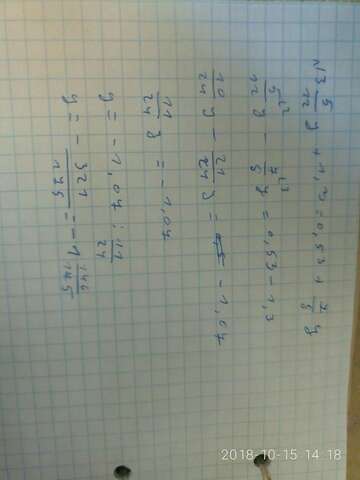 №3 5/12 y + = 0,53 + 7/8 y
5/12 y - 7/8 y = 0,53 - 1,3
10/24 y - 21/24 y = - 1,07
11/24 y = - 1,07
y = - 1,07 : 11/24
y = - 321/175 = - 1 146/175
2018-10-15 14:18